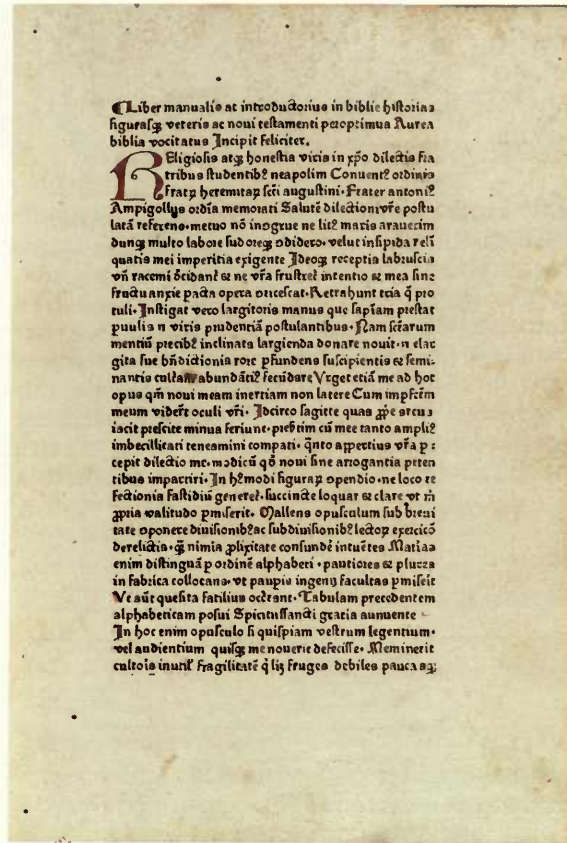 ¶Liber manualis ac introductorius in biblie historias
figurasqȝ veteris ac noui testamenti peroptimus Aurea
biblia vocitatus Incipit feliciter.
REligiosis atqȝ honestis viris in xp̄o dilectis fra
tribus studentibꝰ neapolim Conuentꝰ ordinis
fratrꝝ heremitaꝝ sc̄ti augustini · Frater antoniꝰ
Ampigollus ordīs memorati Salutē dilectionī vr̄e postu
latā referens · metuo nō
dunqȝ multo labore sudoreqȝ odidero · velut insipida
quatis mei imperitia exigente Ideoqȝ receptis labruscis
vr̄i racemi & ne vr̄a frustret̉ intentio & mea sine
fructu anxie pacta opera Retrahunt tria q̄ pro
tuli · Instigat vero largitoris manus que sapīam prestat
puulis n viris prudentiā postulantibus · Nam sc̄tarum
mentiū precibꝰ inclinata largienda donare nouit · n elar
gita sue bn̄dictionis rore p̄fundens suscipientis & semi-
nantis abundātiꝰ fecūdare Vrget etiā me ad hoc
opus qm̄ noui meam inertiam non latere Cum imꝑfc̄m
meum vider̄t oculi vr̄i · Idcirco sagitte quas
iacit prescite minus feriunt · p̄sertim cū mee tanto ampliꝰ
imbecillitati teneamini compati · q̄nto appertius vr̄a p:
cepit dilectio me · modicū qď noui sine arrogantia peten
tibus impartiri · In hꝰmodi figuraꝝ opendio · ne loco re
fectionis fastidiū generet̉ · succincte loquar & clare vt m̄
ꝓpria valitudo p̄miserit · Mallens opusculum sub breui
tate oponere diuisionibꝰ ac subdiuisionibꝰ lectoꝝ exercicō
derelictis · nimia ꝓlixitate confundē intuētes Matias
enim distinguā p ordinē alphabeti · pautiores & plures
in fabrica collocans · vt paupis ingenij facultas p̄miserit
Vt aūt quesita facilius Tabulam precedentem
alphabeticam posui Spiritussancti gratia annuente
In hoc enim opusculo si quispiam vestrum legentium ·
vel audientium quisqȝ me nouerit defecisse · Meminerit
cultoris inutil̉ fragilitatē q̄ lꝫ fruges debiles pauca sqȝ